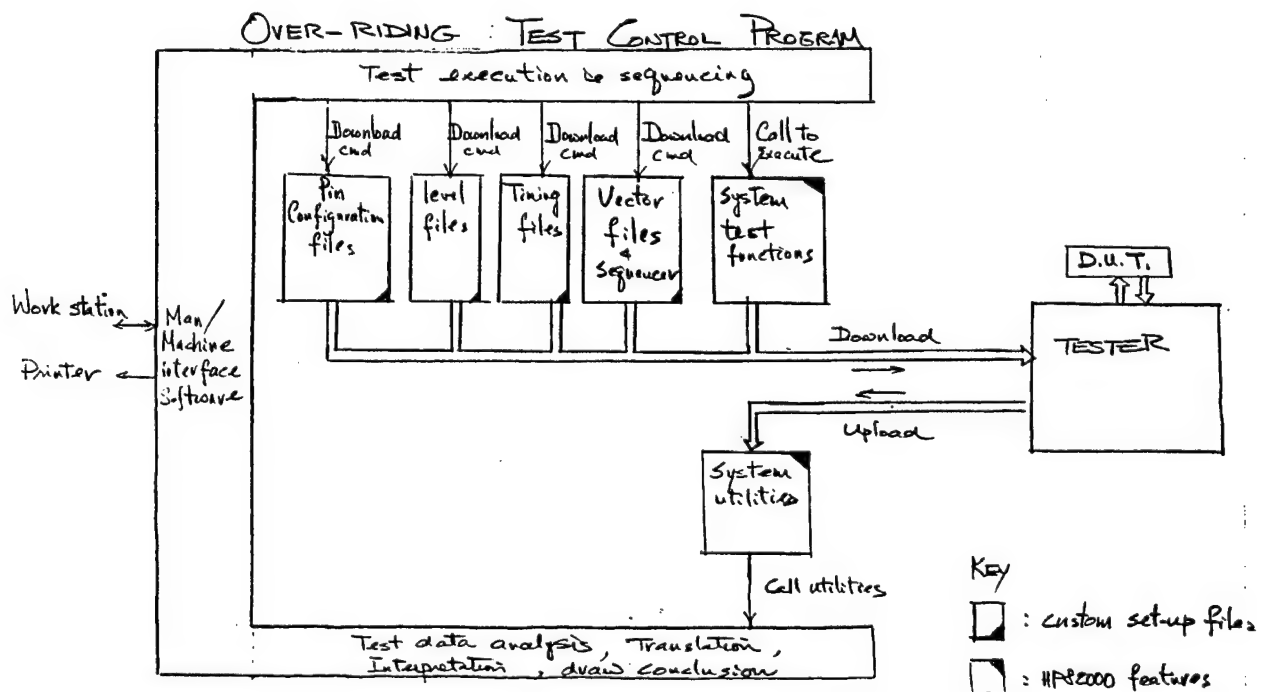 OVER-RIDING : TEST CONTROL PROGRAM
Test execution & sequencing
Download
cmd
Download
cmd
Download
cmd
Download
cmd
Call to
Execute
Pin
Configuration
files
level
files
Timing
files
Vector
files
&
sequencer
System
test
functions
D.U.T.
TESTER
Work station
Printer
Man/
Machine
interface
Software
Download
Upload
System
utilities
Call utilities
Test data analysis, Translation,
Interpretation, draw conclusion
KEY
: custom set-up files
: HP82000 features